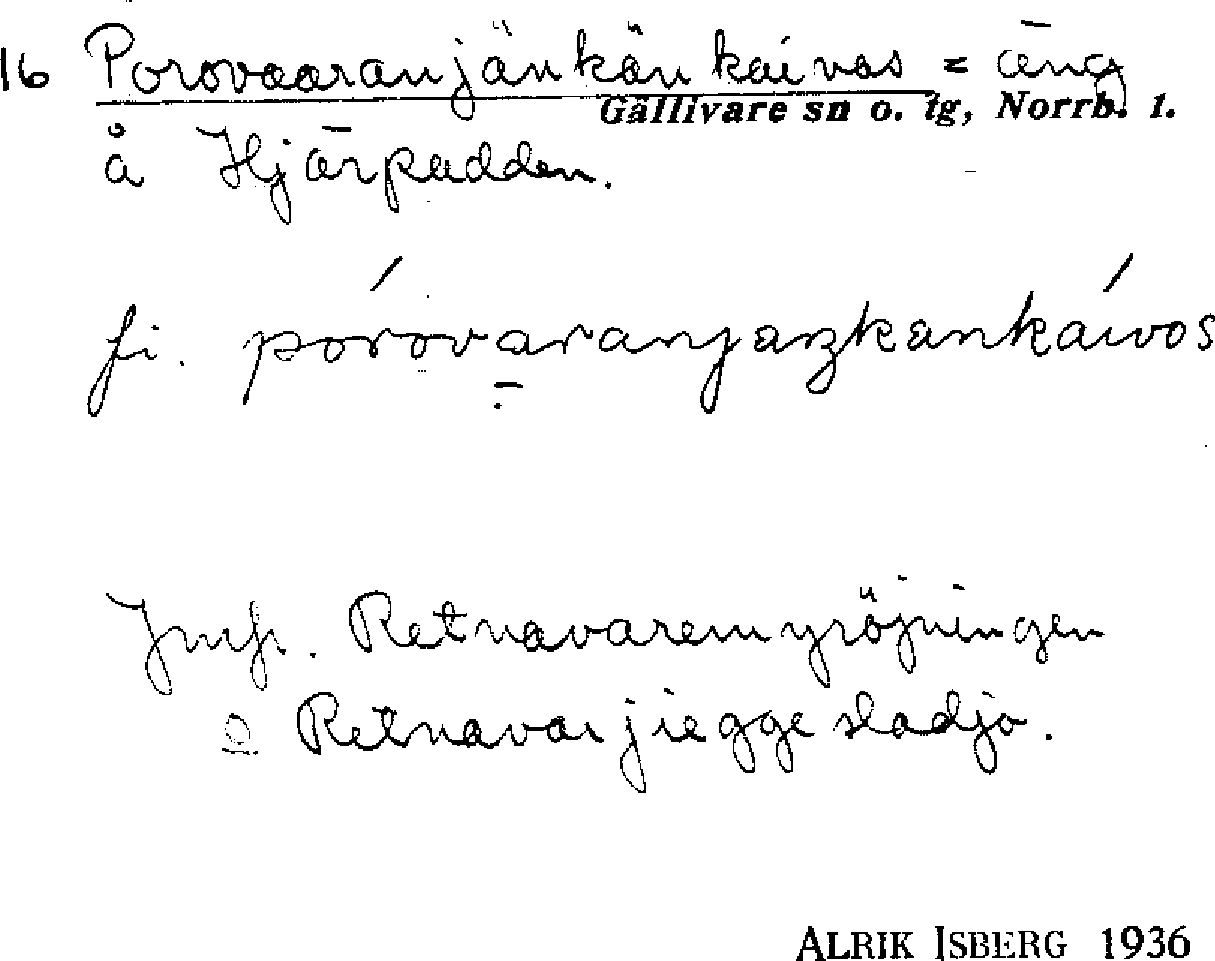 16 Porovaaranjänkänkaivos = äng
Gällivare sn o. tg, Norrb. l.
å Hjärpudden.
fi. pórovaranjaŋkankáivos
Jmfr. Retnavaremyröjningen
o Retnavarjieggesladjo.
ALRIK ISBERG 1936